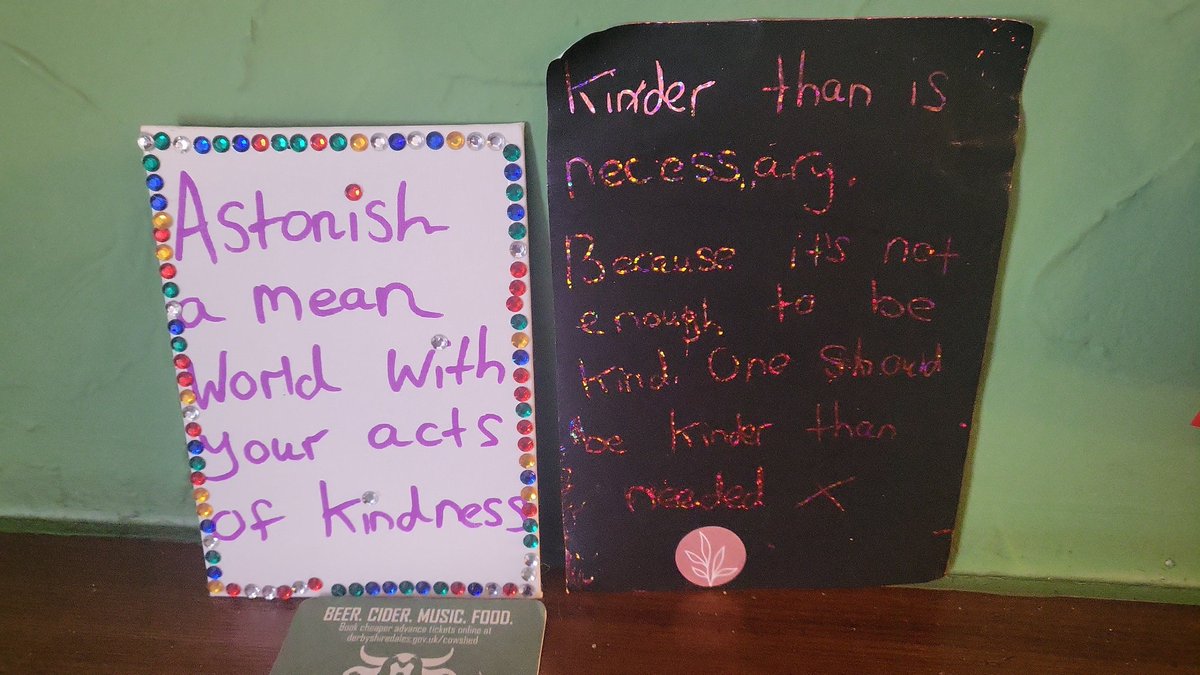 Astonish
a mean
World With
your acts
of kindness
Kinder than is
necessary.
Because it's not
enough to be
kind. One should
be kinder than
needed x
BEER. CIDER. MUSIC. FOOD.
Book cheaper advance tickets online at
derbyshiredales.gov.uk/cowshed